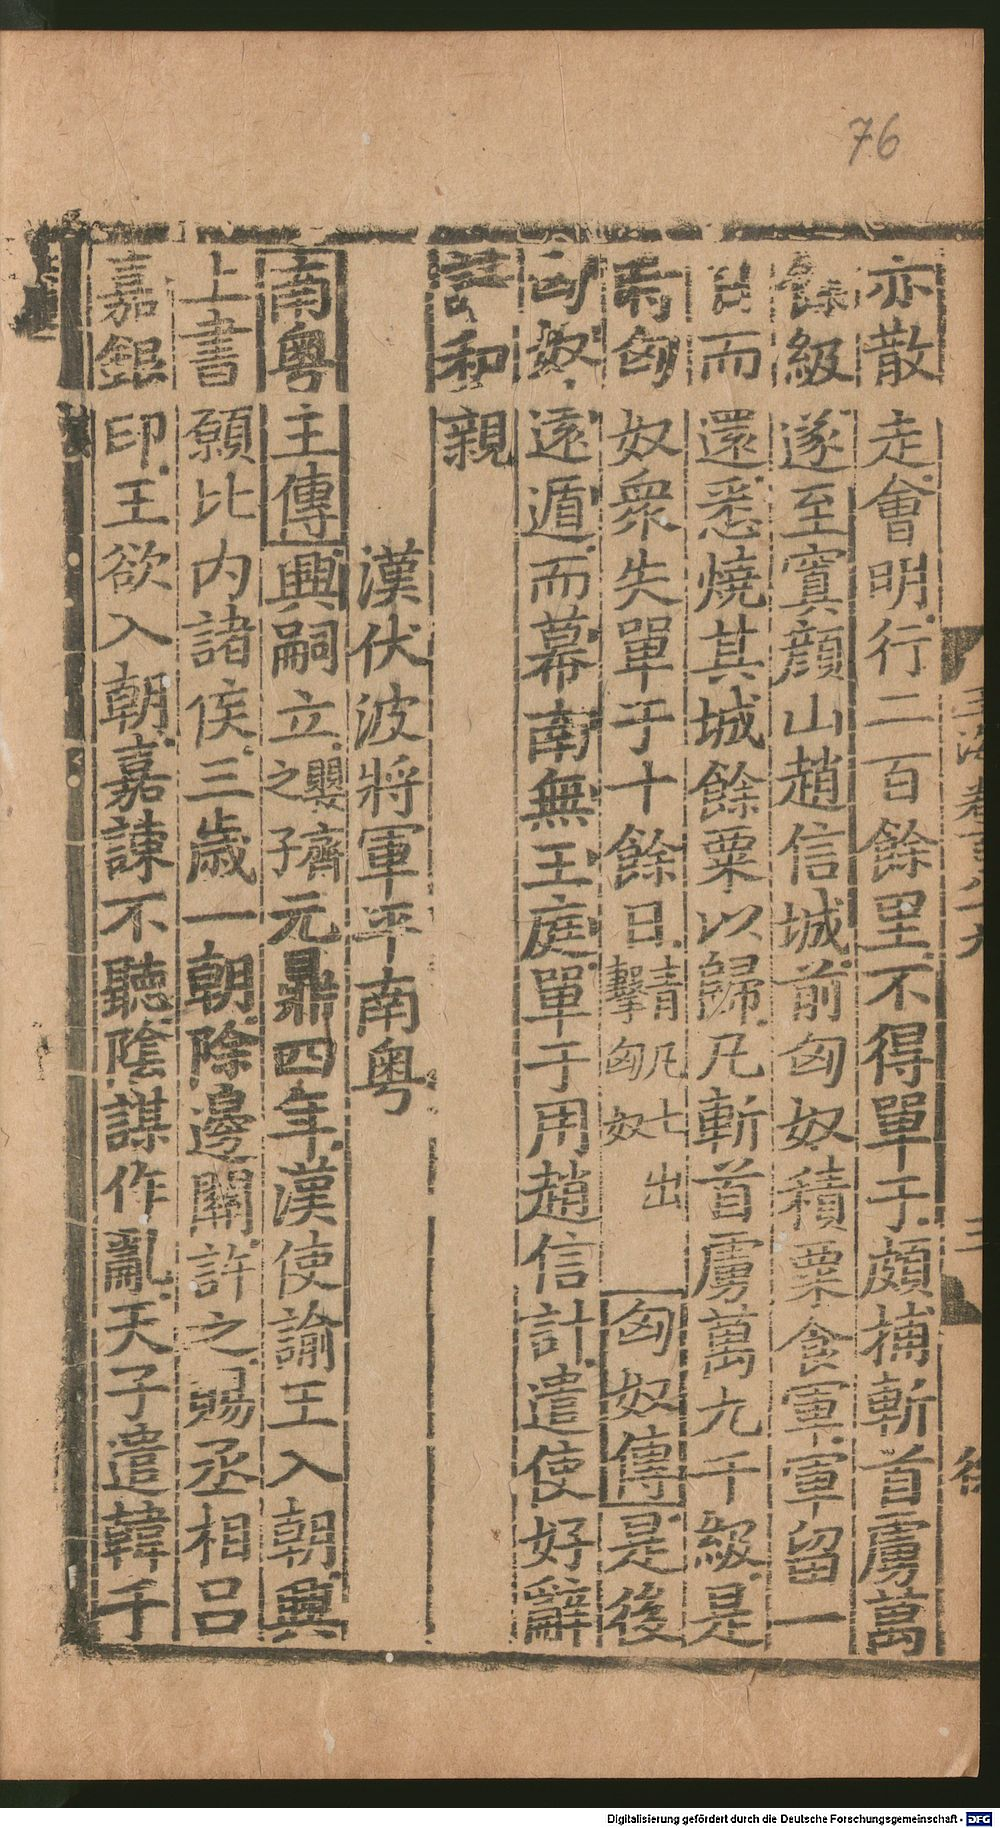 76
亦散走會明行二百餘里不得單于頗捕斬首虜萬
餘級遂至窴顏山趙信城前匈奴積粟食軍軍留一
日而還悉燒其城餘粟以歸凡斬首虜萬九千級是
時匈奴衆失單于十餘日青凡七出擊匈奴匈奴傳是後
匈奴遠遁而幕南無王庭單于用趙信計遣使好辭
請和親
漢伏波將軍平南粤
南粤主傳興嗣立嬰齊之子元鼎四年漢使諭王入朝興
上書願比内諸侯三歲一朝除邊關許之賜丞相呂
嘉銀印王欲入朝嘉諫不聽陰謀作亂天子遣韓千
玉海卷 三
Digitalisierung gefördert durch die Deutsche Forschungsgemeinschaft - DFG